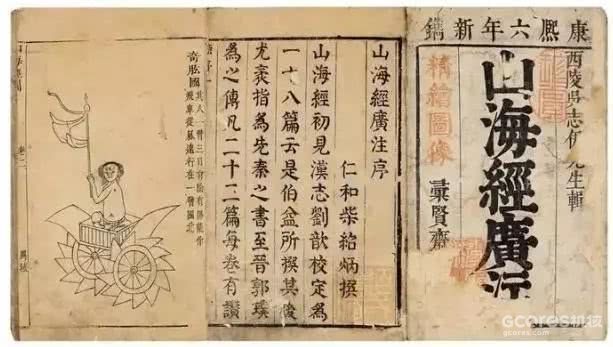 康熙六年新鐫
西陵吳志伊先生輯
山海經廣注
精繪圖像
彙賢齋
山海經廣注序
仁和柴紹炳撰
山海經初見漢志劉歆校定為
一十八篇云是伯益所撰其後
尤袤指為先秦之書至晉郭璞
為之傳凡二十三篇每卷有讚
奇肱國
其人一臂三目有陰有陽能作
飛車從風遠行在一臂國北
異域
GCORES机核